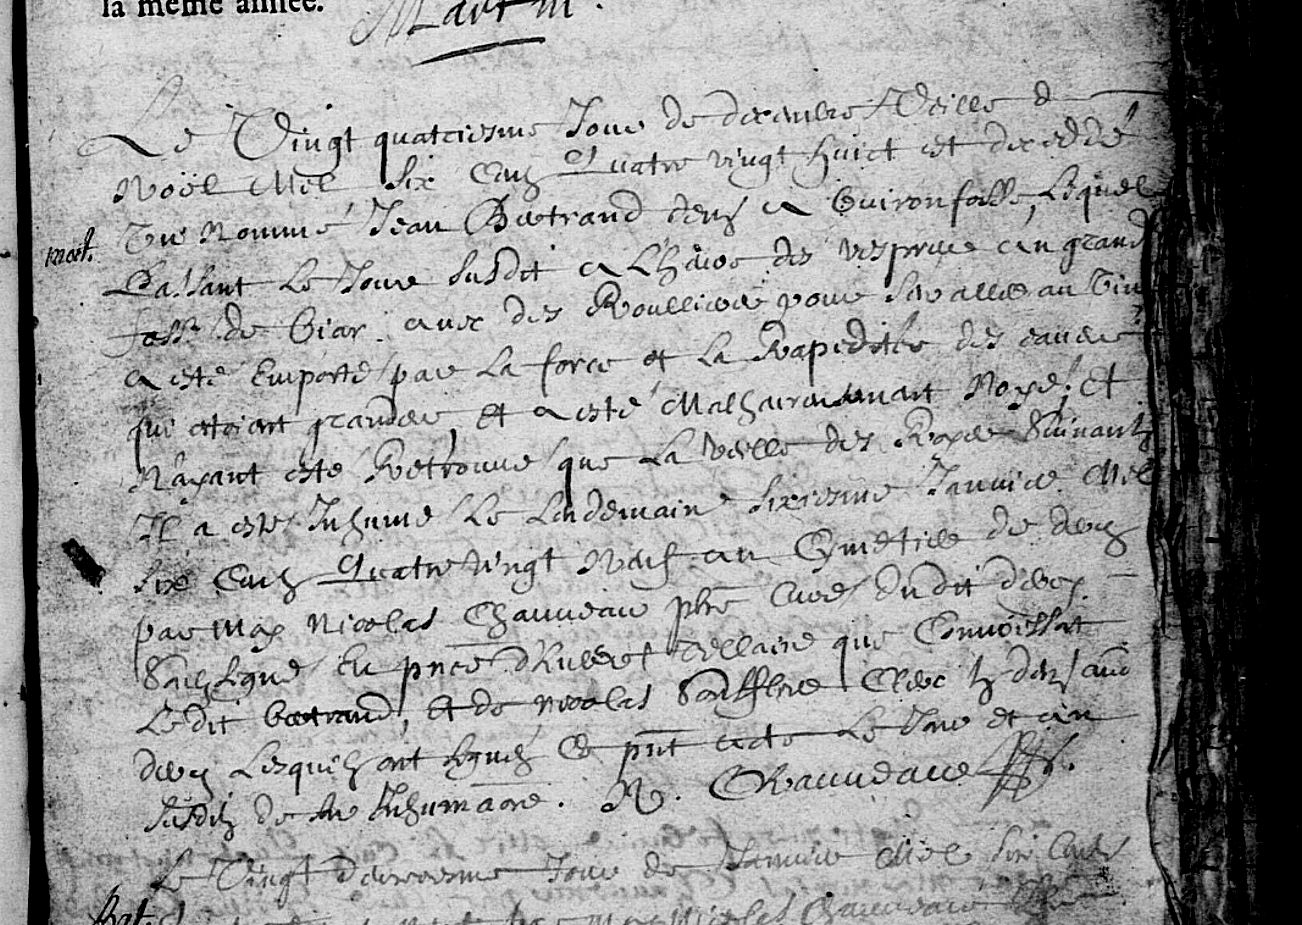 la meme année.
Martin.
Le Vingt quatriesme Jour de decembre Veille de
Noël Mil six Cens Quatre vingt huict est decedé
Un Nommé Jean Bertrand dem a Guironfosse, Lequel
mort.
Passant Le Jour susdit a L'heure des vespres au grand
fossé de avec des Roulliers pour s'en aller au Vin
a esté Emporté par La force et La Rapidité des eaues
qui estoient grandes, et a esté Malheureusement Noyé; Et
N'ayant esté Retrouvé que La veille des Roys Suivants
Il a esté Inhumé Le Lendemain sixiesme Janvier Mil
six Cens Quatre Vingt Neuf au Cymetiere de
par moy Nicolas Chauveau pbre Curé dudit
Soubsigné En pnce d'Hubert que Connoissoit
Ledit Bertrand, et de Nicolas Clerc
Lesquels ont signés Ce pnt acte Le Jour et an
susdits de son Inhumaon. N. Chauveau
Le Vingt Jour de Janvier Mil six Cents
Bat. Nicolas Chauveau